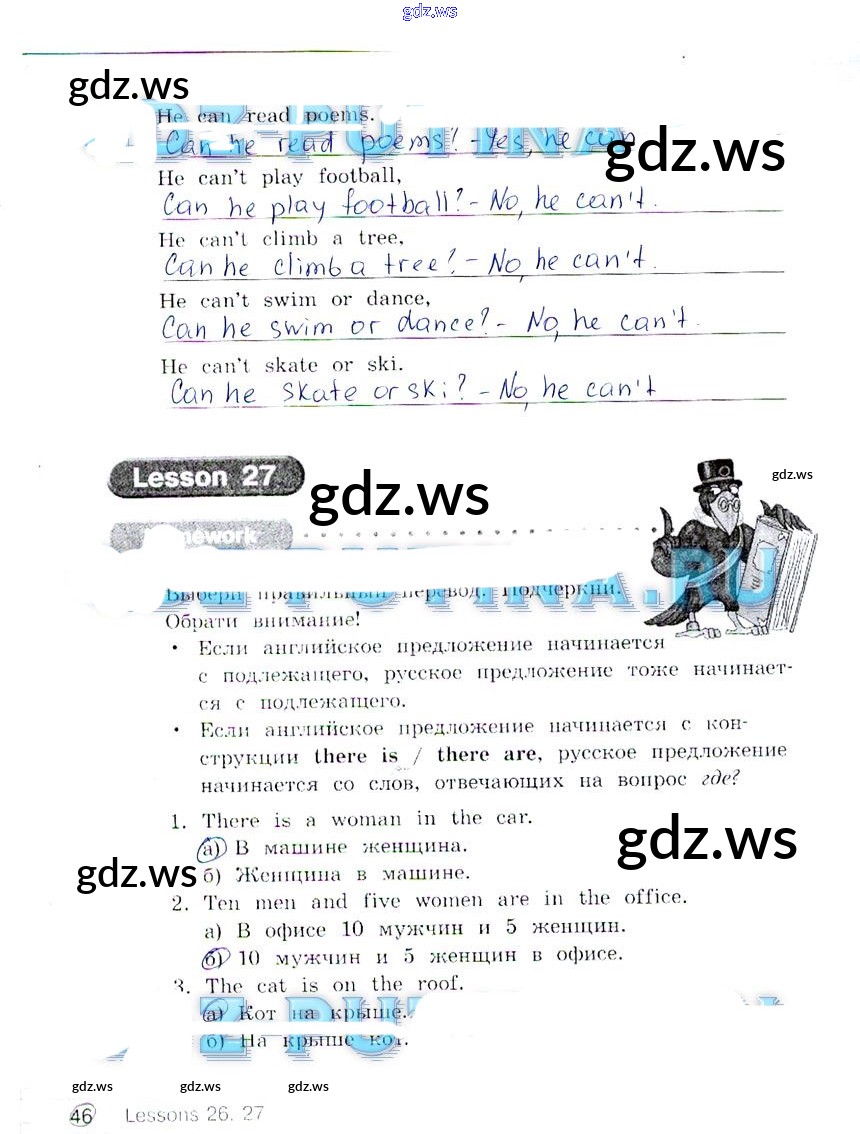 gdz.ws
gdz.ws
He can read poems.
Can he read poems? - Yes, he can
gdz.ws
He can't play football,
Can he play football? - No, he can't.
He can't climb a tree,
Can he climb a tree? - No, he can't.
He can't swim or dance,
Can he swim or dance? - No, he can't.
He can't skate or ski.
Can he skate or ski? - No, he can't
Lesson 27
gdz.ws
gdz.ws
Выбери правильный перевод. Подчеркни.
Обрати внимание!
• Если английское предложение начинается
с подлежащего, русское предложение тоже начинает-
ся с подлежащего.
• Если английское предложение начинается с кон-
струкции there is / there are, русское предложение
начинается со слов, отвечающих на вопрос где?
1. There is a woman in the car.
а) В машине женщина.
gdz.ws
б) Женщина в машине.
gdz.ws
2. Ten men and five women are in the office.
а) В офисе 10 мужчин и 5 женщин.
б) 10 мужчин и 5 женщин в офисе.
3. The cat is on the roof.
а) Кот на крыше.
б) На крыше кот.
gdz.ws gdz.ws gdz.ws
46 Lessons 26, 27